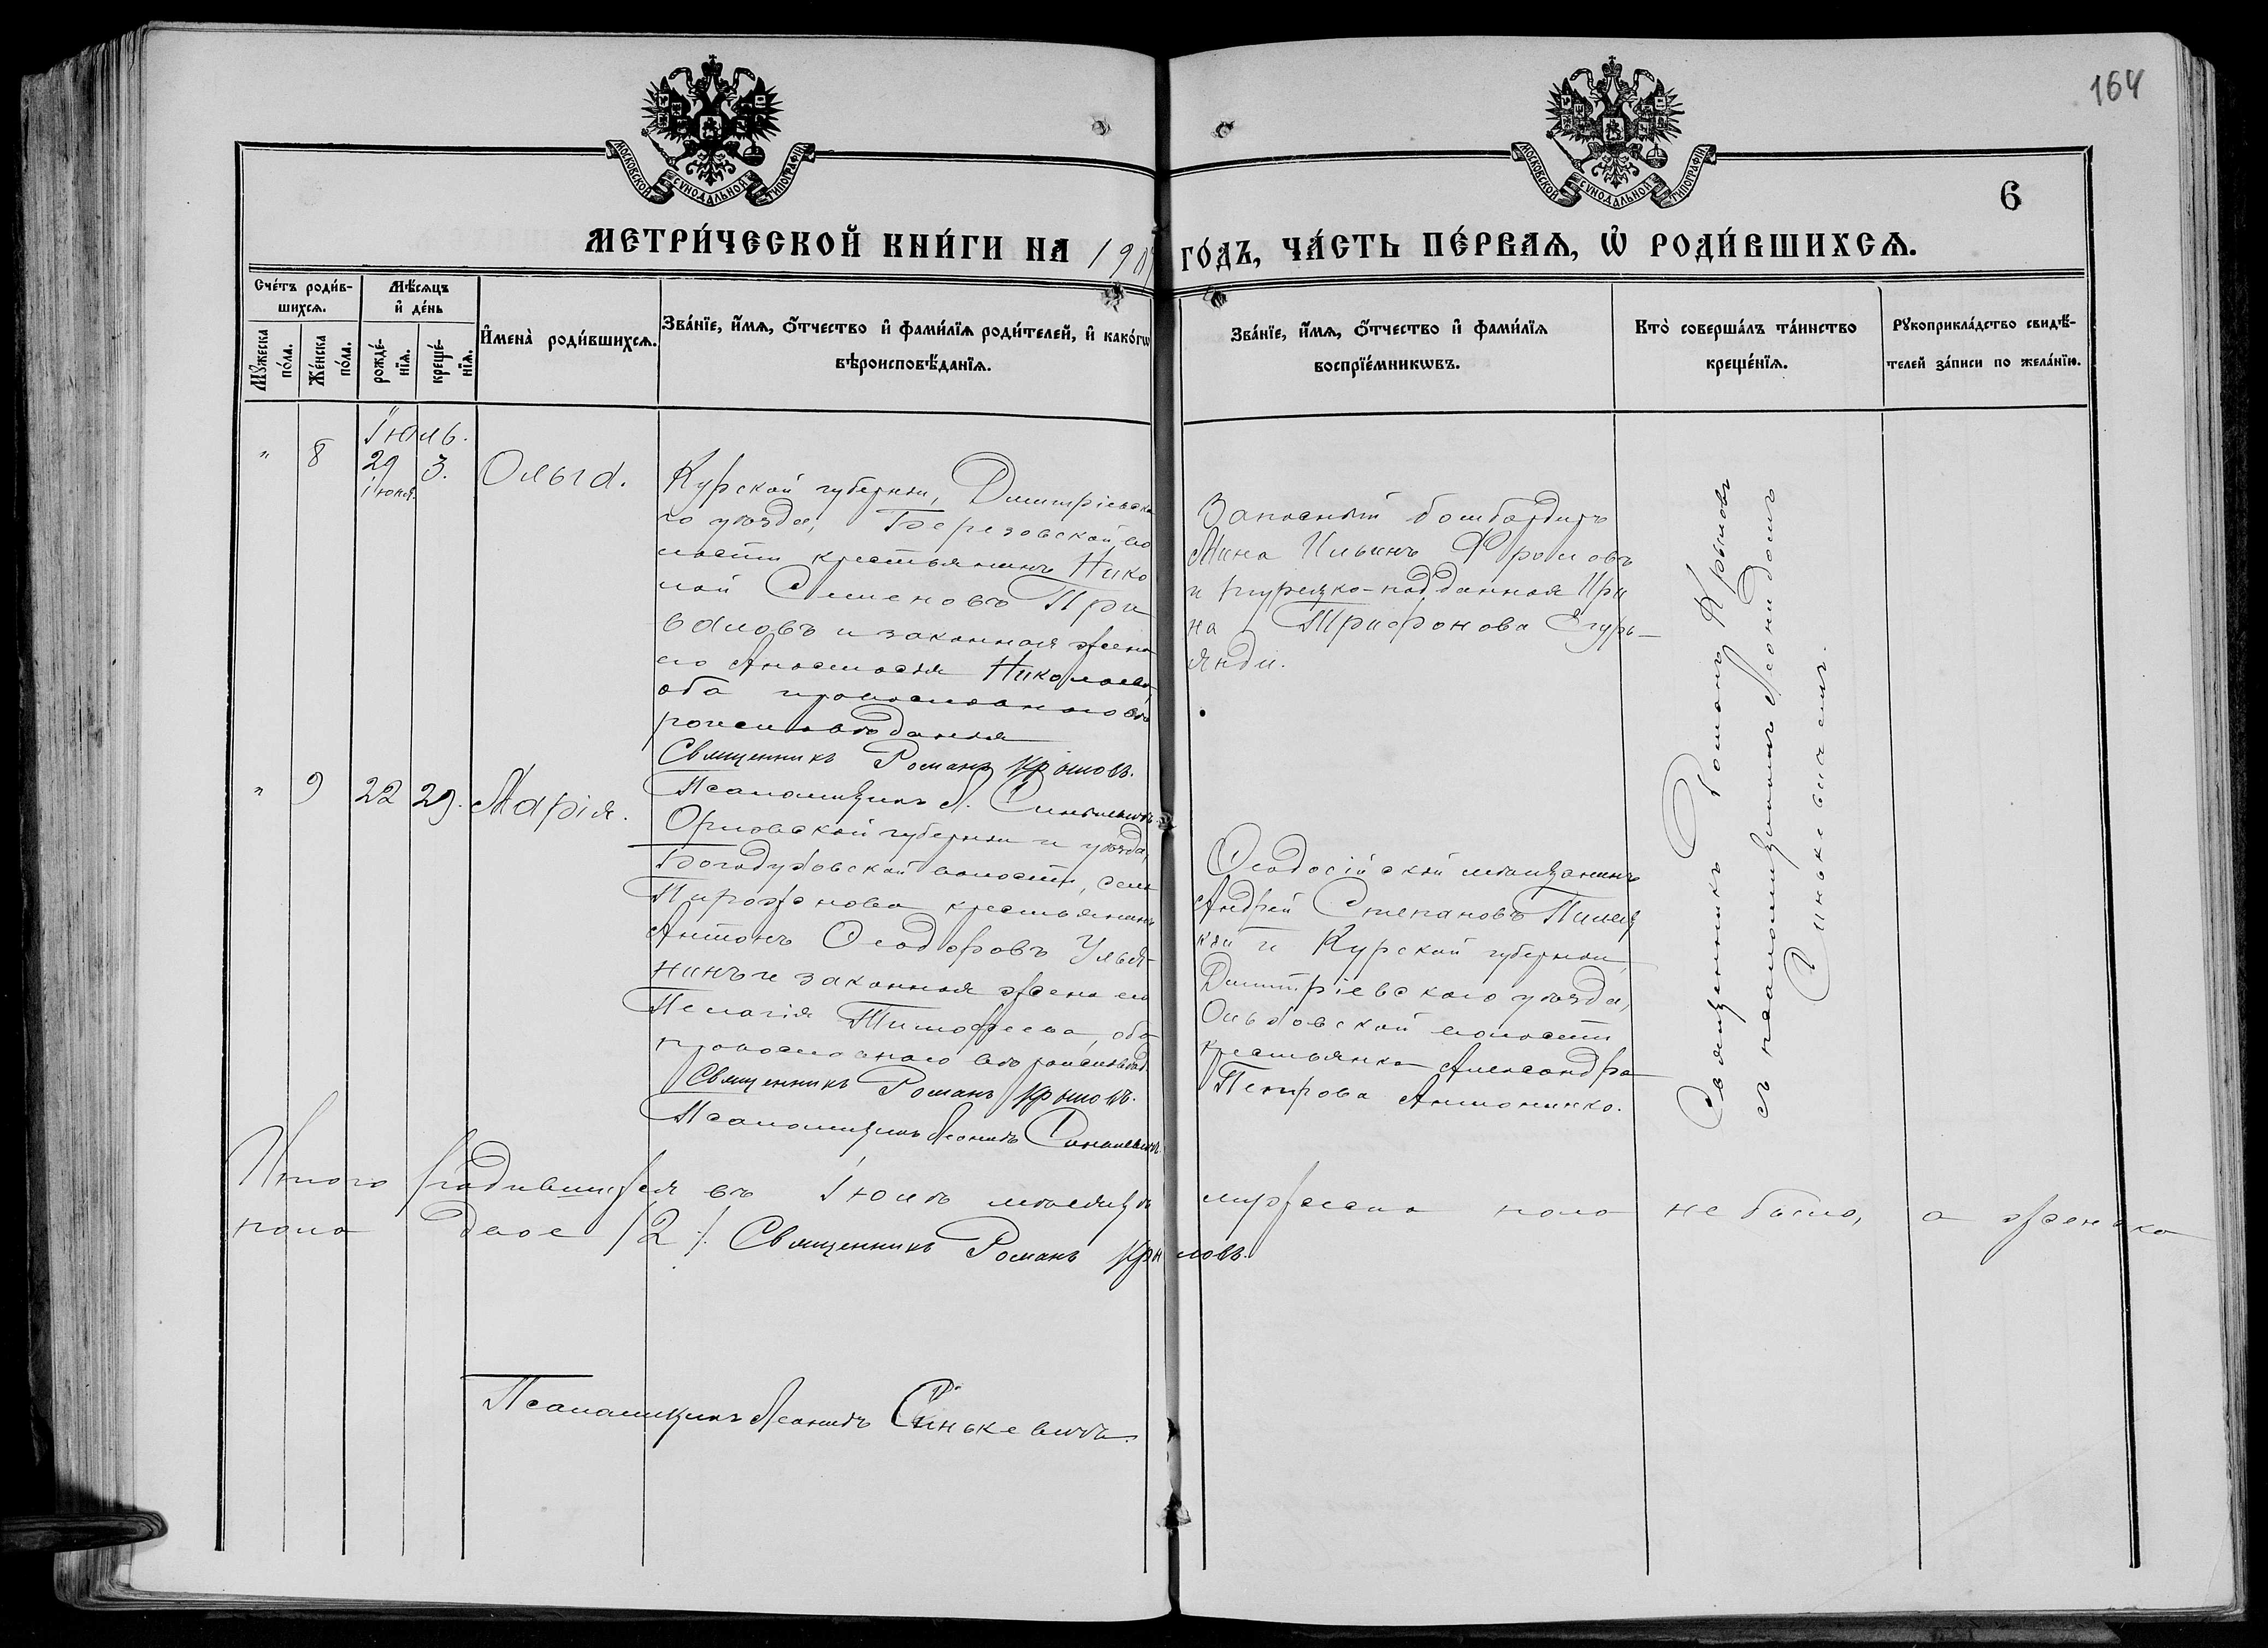 164
МОСКОВСКОЙ СѴНОДАЛЬНОЙ ТИПОГРАФІИ
МОСКОВСКОЙ СѴНОДАЛЬНОЙ ТИПОГРАФІИ
6
МЕТРИ́ЧЕСКОЙ КНИ́ГИ НА 190 ГО́ДЪ, ЧА́СТЬ ПЕ́РВАѦ, Ѡ҆ РОДИ́ВШИХСѦ.
Сче́тъ роди́в-
шихсѧ.
Мꙋ́жеска
по́ла.
Же́нска
по́ла.
Мѣ́сѧцъ
и҆ де́нь
рожде́-
нїѧ.
креще́-
нїѧ.
И҆мена̀ роди́вшихсѧ.
Зва́нїе, и҆́мѧ, ѻ҆́тчество и҆ фами́лїѧ роди́телей, и҆ како́гѡ
вѣроисповѣ́данїѧ.
Зва́нїе, и҆́мѧ, ѻ҆́тчество и҆ фами́лїѧ
воспрїе́мникѡвъ.
Кто̀ соверша́лъ та́инство
креще́нїѧ.
Рꙋкоприкла́дство свидѣ́-
телей за́писи по жела́нїю.
Іюль.
" 8 29 3. Ольга.
іюня.
Курской губерніи, Димитріевска
го уѣзда, Березовской во
лости крестьянинъ Нико
лай Семеновъ При
валовъ и законная жена
его Анастасія Николаева,
оба православнаго вѣ
роисповѣданія
Священникъ Романъ Крыловъ.
Псаломщикъ Л. Синькевичъ
Запасный бомбардиръ
Мина Ильинъ Фроловъ
и турецко-подданная Ири
на Трифонова Згурь-
янди.
" 9 22 29. Марія.
Орловской губерніи и уѣзда,
Богодуховской волости, села
Пирожкова крестьянинъ
Антонъ Ѳеодоровъ Улья
нинъ и законная жена его
Пелагія Тимофеева, оба
православнаго вѣроисповѣд
Священникъ Романъ Крыловъ.
Псаломщикъ Леонидъ Синькевичъ.
Ѳеодосійскій мѣщанинъ
Андрей Степановъ
и Курской губерніи,
Димитріевскаго уѣзда,
волости
крестьянка Александра
Петрова Антоненко.
Священникъ Романъ Крыловъ
съ псаломщикомъ Леонидомъ
Синькевичемъ.
Итого родившихся въ Іюлѣ мѣсяцѣ мужеска пола не было, а женска
пола двое /2/. Священникъ Романъ Крыловъ.
Псаломщикъ Леонидъ Синькевичъ.